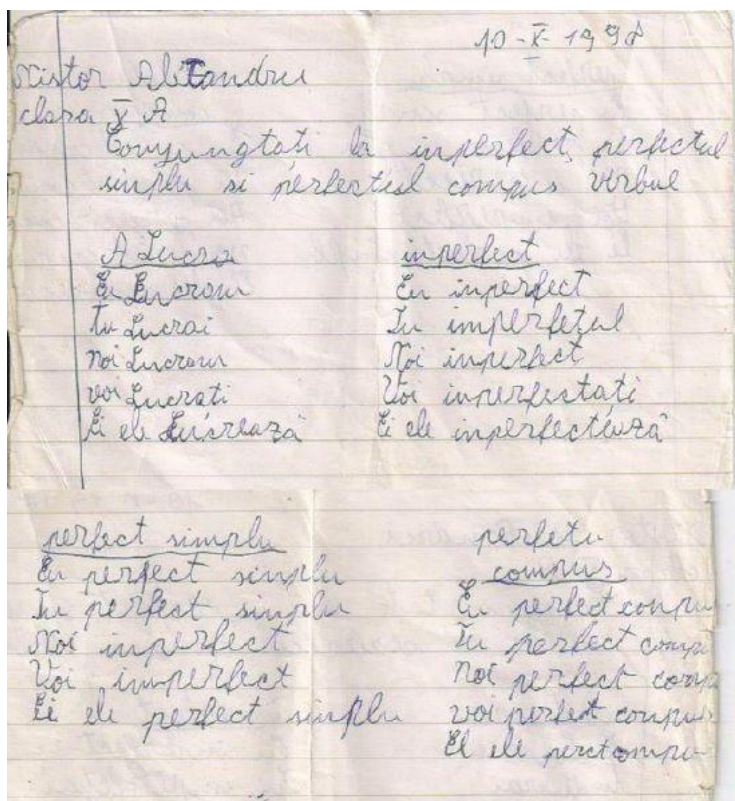 10-X-1998
Nistor Alixandru
clasa X A
Conjungtati la inperfect, perfectul
simplu si perfectul compus verbul
A Lucra
Eu Lucram
tu Lucrai
noi Lucram
voi Lucrati
Ei ele Lucrează
inperfect
Eu inperfect
Tu imperfetul
Noi inperfect
Voi inperfectati
Ei ele inperfectează
perfect simplu
Eu perfect simplu
Tu perfect simplu
Noi inperfect
Voi imperfect
Ei ele perfect simplu
perfetu
compus
Eu perfect conpu
Tu perfect compu
noi perfect comp
voi perfect conpus
El ele perctompu